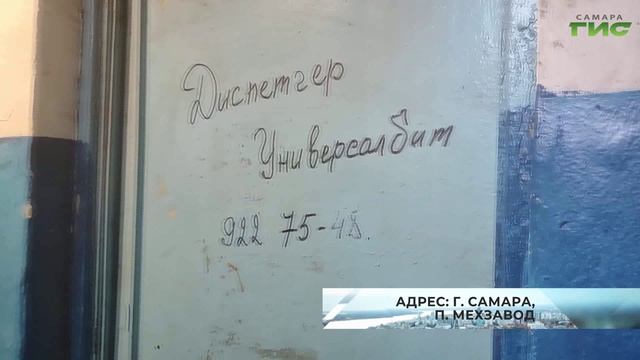 САМАРА
ГИС
Диспетчер
Универсалбыт
922 75-48.
АДРЕС: Г. САМАРА,
П. МЕХЗАВОД